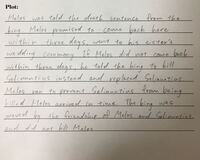 Plot:
Melos was told the death sentence from the
king Melos promised to come back here
within three days, went to his sister's
wedding ceremony If Melos did not come back
within three days, he told the king to kill
Selinuntius instead and replaced Selinuntius
Melos ran to prevent Selinuntius from being
killed Melos arrived in time. The king was
moved by the friendship of Melos and Selinuntius
and did not kill Melos